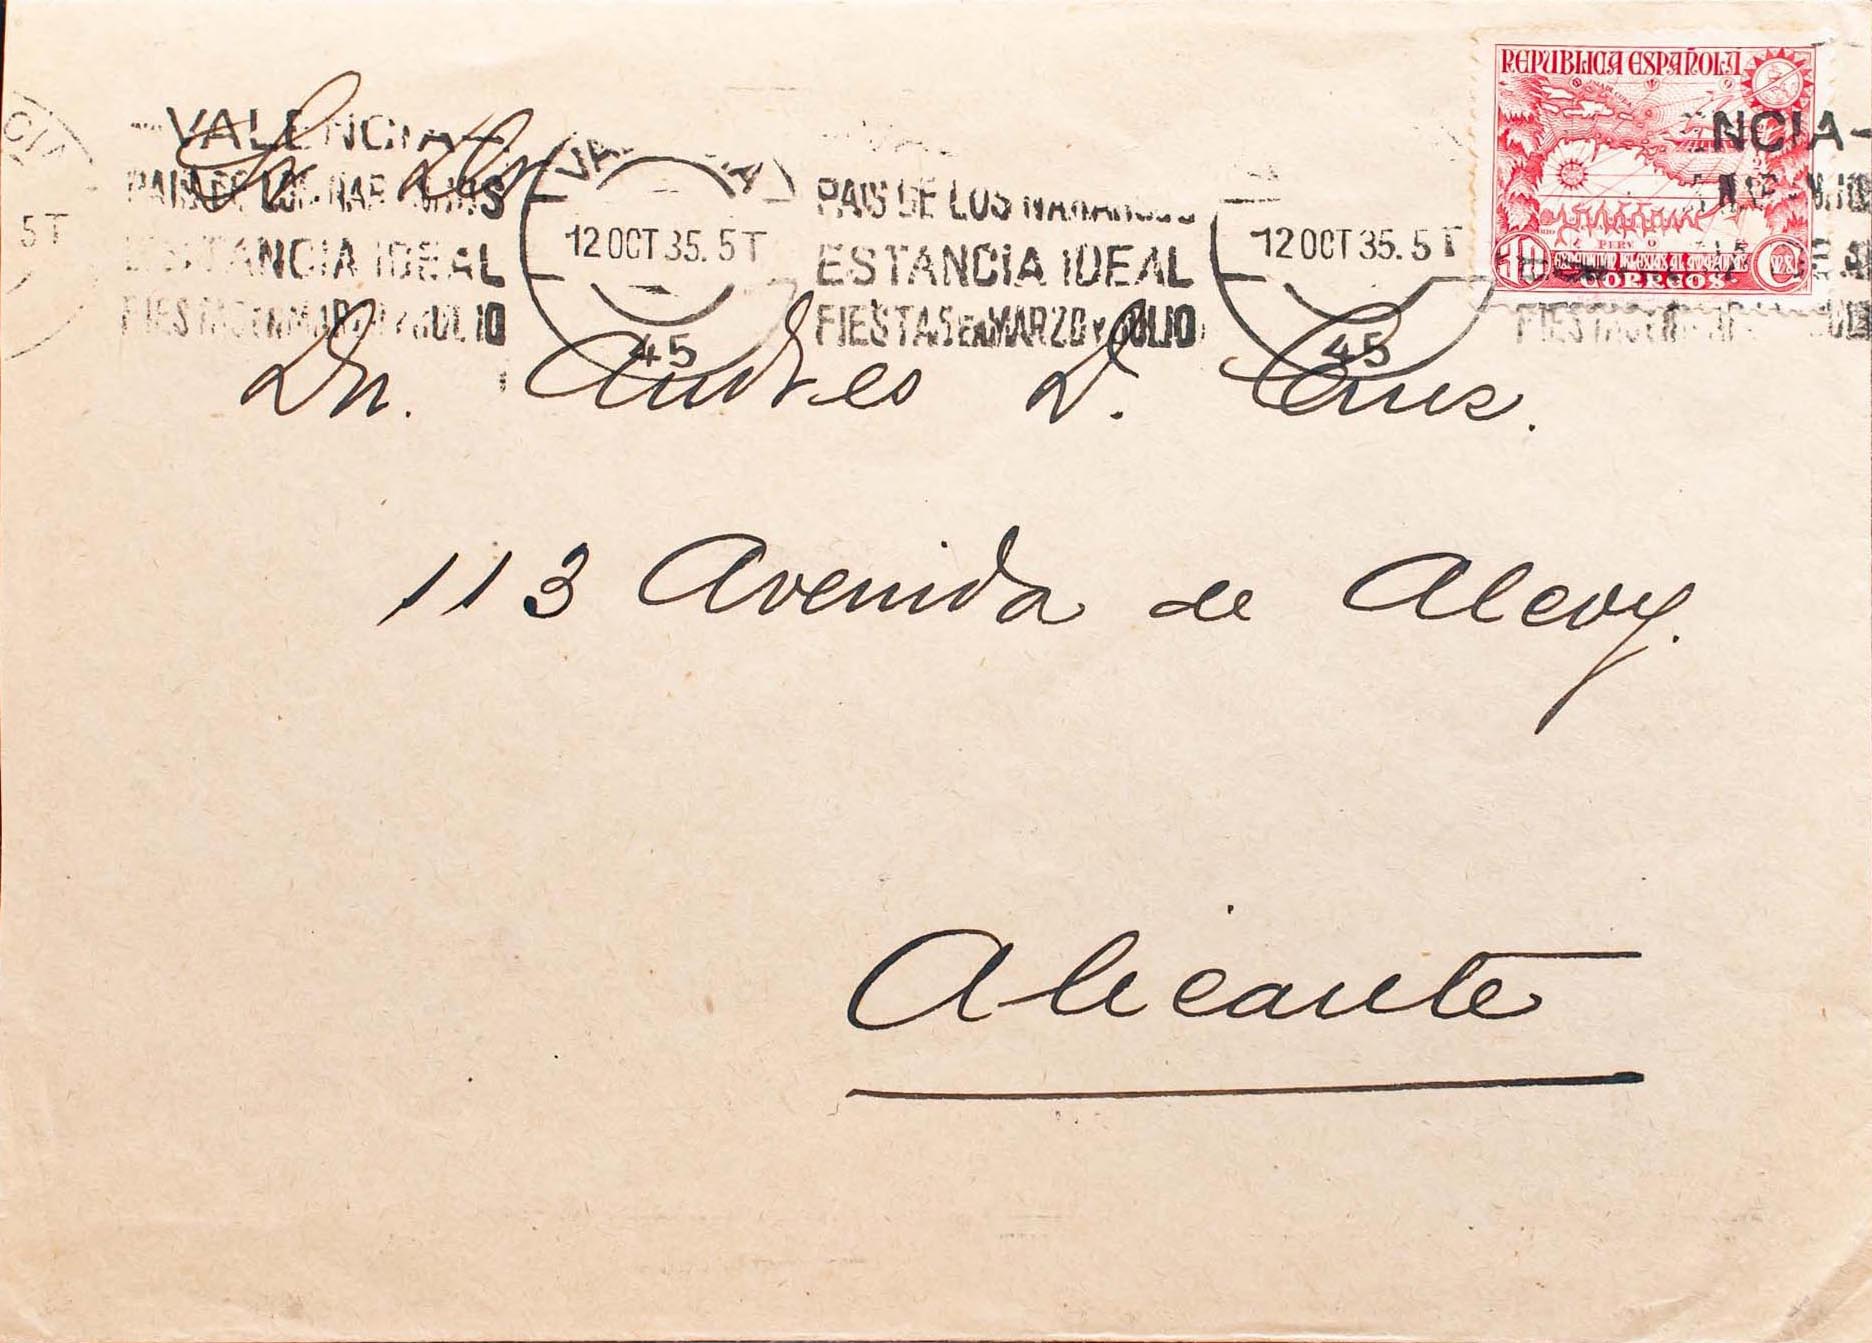 REPUBLICA ESPAÑOLA
PERU
EXPEDICION IGLESIAS AL AMAZONAS
CORREOS
VALENCIA
PAIS DE LOS NARANJOS
ESTANCIA IDEAL
FIESTAS EN MARZO Y JULIO
12 OCT 35. 5T
45
PAIS DE LOS NARANJOS
ESTANCIA IDEAL
FIESTAS EN MARZO Y JULIO
12 OCT 35. 5T
45
NCIA
5T
Sr. Dn.
Dn. Andres D. Cruz.
113 Avenida de Alcoy.
Alicante